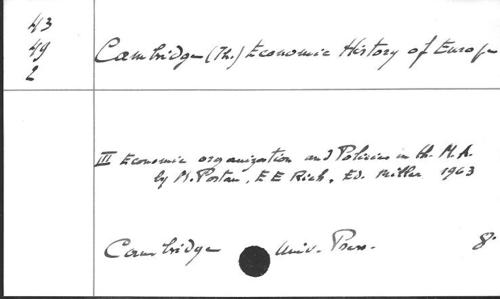 43
49
2
Cambridge (Th.) Economic History of Europe
III Economic organization and Policies in th. M.A.
by M. Postan, E E Rich, Ed. Miller 1963
Cambridge Univ. Press. 8°